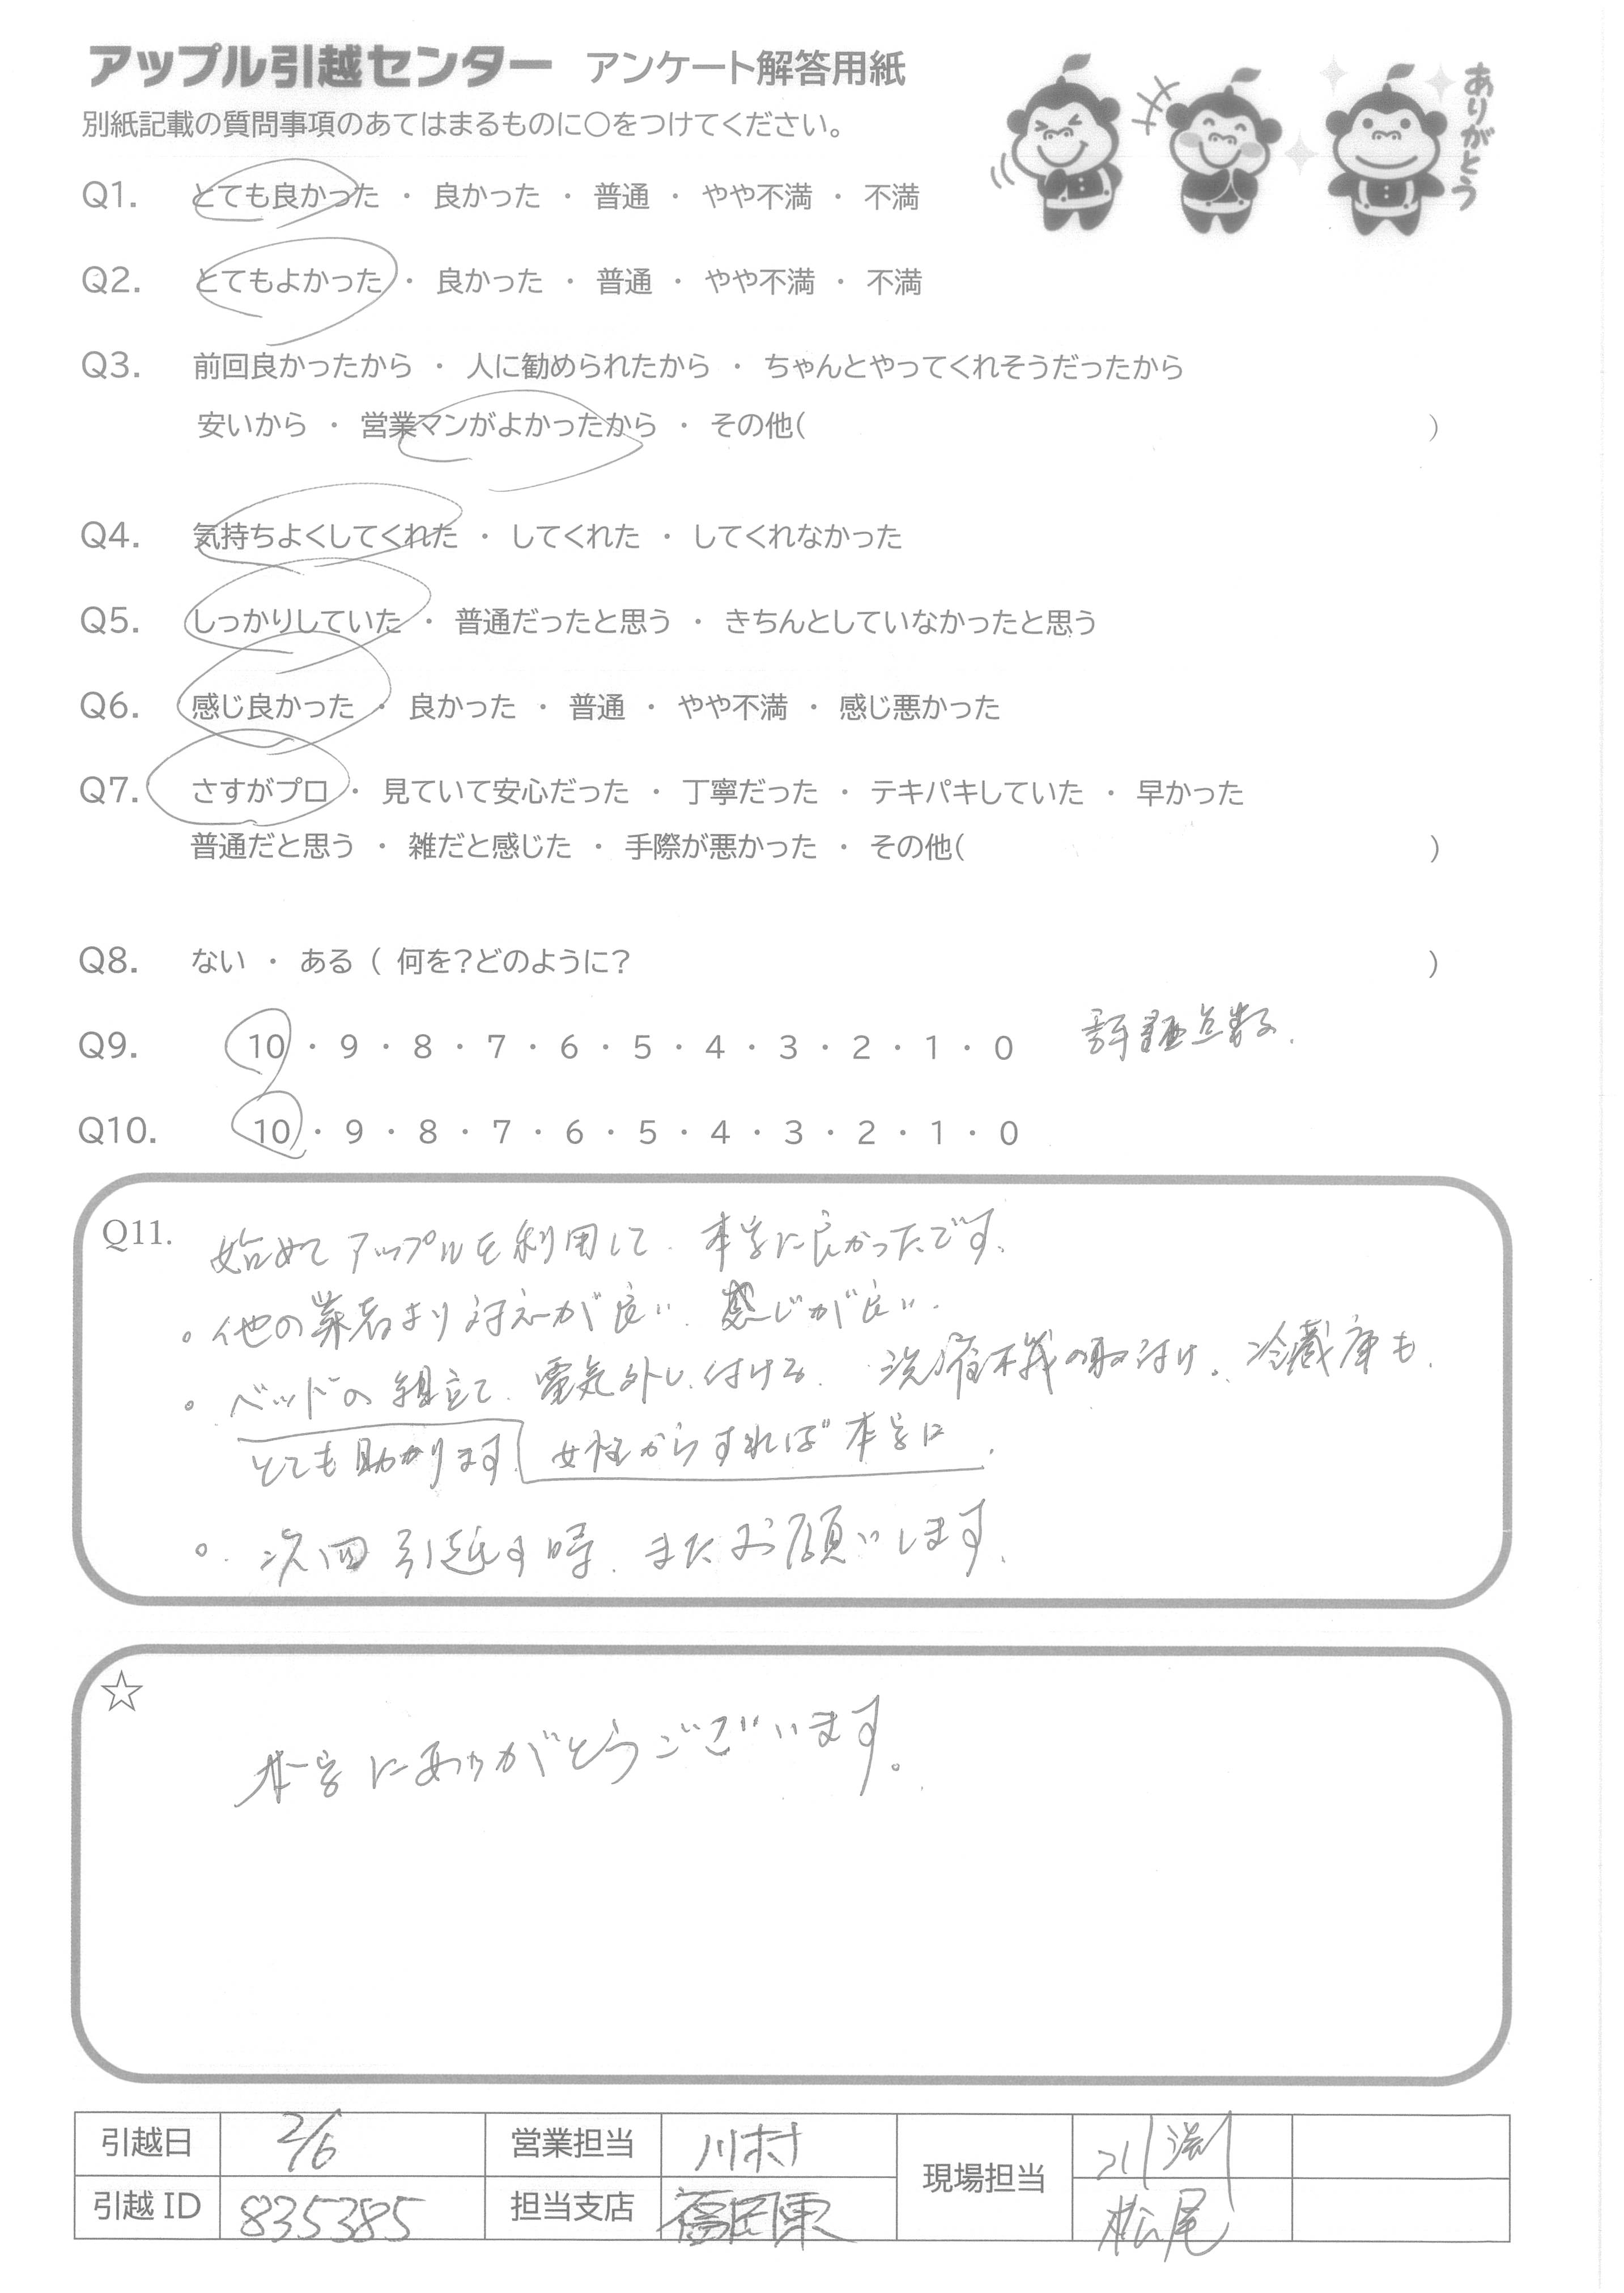 アップル引越センター アンケート解答用紙
ありがとう
別紙記載の質問事項のあてはまるものに〇をつけてください。
Q1. とても良かった ・ 良かった ・ 普通 ・ やや不満 ・ 不満
Q2. とてもよかった ・ 良かった ・ 普通 ・ やや不満 ・ 不満
Q3. 前回良かったから ・ 人に勧められたから ・ ちゃんとやってくれそうだったから
安いから ・ 営業マンがよかったから ・ その他( )
Q4. 気持ちよくしてくれた ・ してくれた ・ してくれなかった
Q5. しっかりしていた ・ 普通だったと思う ・ きちんとしていなかったと思う
Q6. 感じ良かった ・ 良かった ・ 普通 ・ やや不満 ・ 感じ悪かった
Q7. さすがプロ ・ 見ていて安心だった ・ 丁寧だった ・ テキパキしていた ・ 早かった
普通だと思う ・ 雑だと感じた ・ 手際が悪かった ・ その他( )
Q8. ない ・ ある ( 何を?どのように? )
Q9. 10 ・ 9 ・ 8 ・ 7 ・ 6 ・ 5 ・ 4 ・ 3 ・ 2 ・ 1 ・ 0 点数.
Q10. 10 ・ 9 ・ 8 ・ 7 ・ 6 ・ 5 ・ 4 ・ 3 ・ 2 ・ 1 ・ 0
Q11. 始めてアップルを利用して. 本当に良かったです.
。他の業者より対応が良い. 感じが良い.
。ベッドの組立て. 電気外し. 付ける. 洗濯機の取付け. 冷蔵庫も.
とても助かります. 女性からすれば本当に.
。次回引越す時. またお願いします.
☆
本当にありがとうございます。
引越日 2/6 営業担当 川村 現場担当 川渕
引越 ID 835385 担当支店 福岡東 松尾